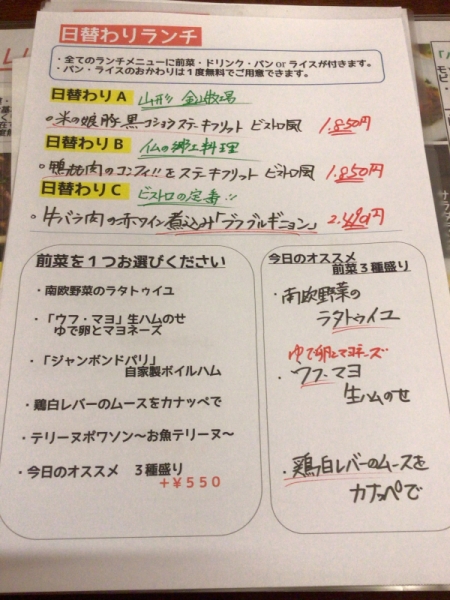 日替わりランチ
・全てのランチメニューに前菜・ドリンク・パン or ライスが付きます。
・パン・ライスのおかわりは1度無料でご用意できます。
日替わりA 山形 金山牧場
○米の娘豚 黒コショウステーキフリット ビストロ風 1.850円
日替わりB 仏の郷土料理
○鴨もも肉のコンフィ!!をステーキフリット ビストロ風 1.850円
日替わりC ビストロの定番!!
○牛バラ肉の赤ワイン煮込み「ブフブルギニョン」
前菜を1つお選びください
・南欧野菜のラタトゥイユ
・「ウフ・マヨ」生ハムのせ
ゆで卵とマヨネーズ
・「ジャンボンドパリ」
自家製ボイルハム
・鶏白レバーのムースをカナッペで
・テリーヌポワソン～お魚テリーヌ～
・今日のオススメ 3種盛り
＋￥５５０
今日のオススメ
前菜3種盛り
・南欧野菜の
ラタトゥイユ
ゆで卵とマヨネーズ
・ウフ・マヨ
生ハムのせ
・鶏白レバーのムースを
カナッペで